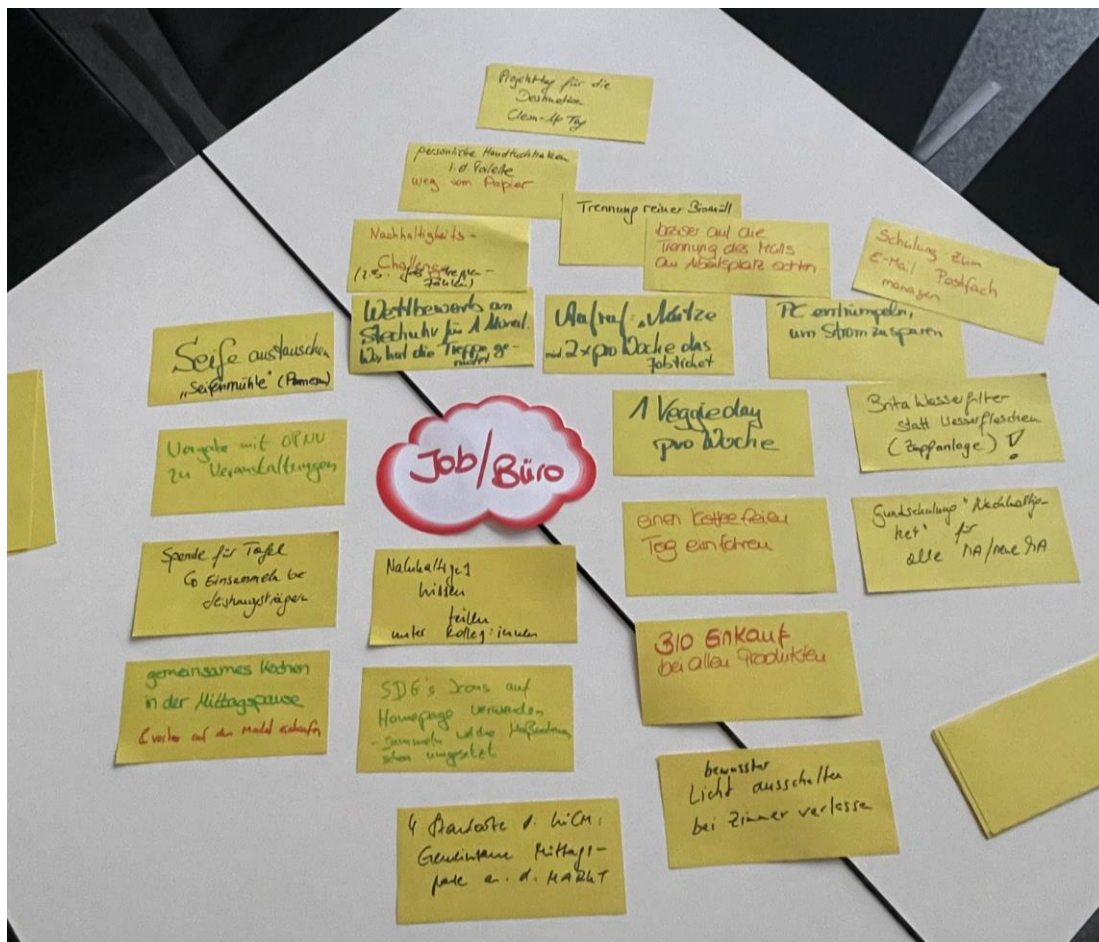 Projekttag für die
Destination
Clean-Up Tag
persönliche Handtuchhaken
i.d. Toilette
weg vom Papier
Trennung reiner Biomüll
besser auf die
Trennung des Mülls
am Arbeitsplatz achten
Schulung zum
E-Mail Postfach
managen
Nachhaltigkeits-
Challenge
(z.B.
zählen)
Wettbewerb an
Stechuhr für 1 Monat.
Wer hat die Treppe ge-
nutzt
Aufruf: "Nütze
mind. 2x pro Woche das
Jobticket
PC entrümpeln,
um Strom zu sparen
Seife austauschen
"Seifenmühle" (Pomern)
Job/Büro
1 Veggieday
pro Woche
Brita Wasserfilter
statt Wasserflaschen
(Zapfanlage) !
Vorgabe mit ÖPNV
zu Veranstaltungen
einen Kaffee freien
Tag einführen
Grundschulung "Nachhaltig-
keit" für
alle MA/neue MA
Spende für Tafel
Einsammeln bei
Leistungsträgern
Nachhaltiges
Wissen
teilen
unter Kolleg:innen
BIO Einkauf
bei allen Produkten
gemeinsames Kochen
in der Mittagspause
vorher auf dem Markt einkaufen
SDG's Icons auf
Homepage verwenden
- sammeln welche Maßnahmen
schon umgesetzt
bewusster
Licht ausschalten
bei Zimmer verlassen
4 Standorte d.
Gemeinsame Mittags-
a. d. MARKT